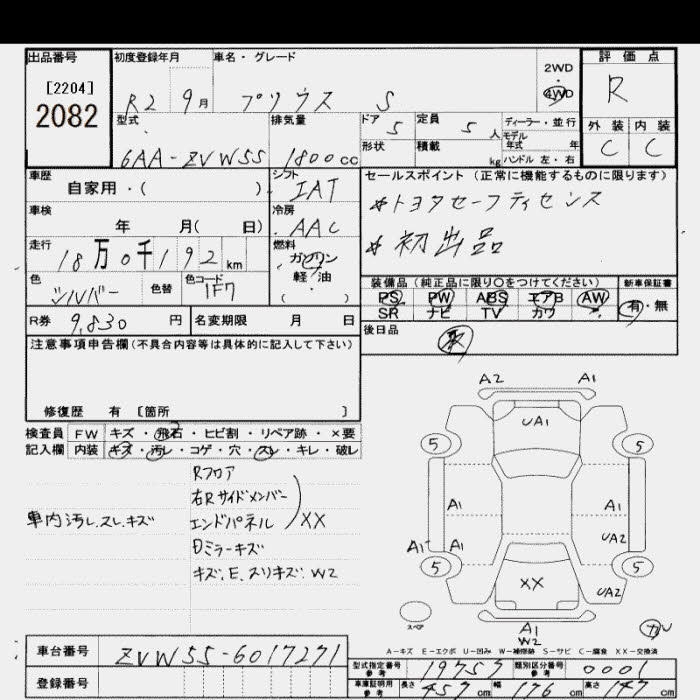 出品番号 初度登録年月 車名・グレード 評価点
[2204]
2082
R2 9月 プリウス S 2WD・4WD R
型式 排気量 ドア 5 定員 5 人 ディーラー・並行 外装 内装
6AA-ZVW55 1800cc 形状 積載 kg モデル年式 年 ハンドル 左・右 C C
車歴 自家用・( ) シフト IAT セールスポイント (正常に機能するものに限ります)
車検 年 月( 日) 冷房 AAC *トヨタセーフティセンス
走行 18万0千192km 燃料 ガソリン 軽・油 ( ) *初出品
色 シルバー 色替 色コード 1F7 装備品 (純正品に限り○をつけてください) 新車保証書
PS PW ABS エアB AW 有・無
SR ナビ TV カワ
R券 9,830 円 名変期限 月 日 後日品
注意事項申告欄(不具合内容等は具体的に記入して下さい)
修復歴 有 [箇所 ]
検査員 FW キズ・飛石・ヒビ割・リペア跡・×要
記入欄 内装 キズ・汚レ・コゲ・穴・スレ・キレ・破レ
Rフロア
右Rサイドメンバー
車内汚レ.スレ.キズ エンドパネル XX
Dミラーキズ
キズ.E.スリキズ.W2
A2 A1
UA1
5 5
A1 A1
A1 A1 UA2
5 5
XX UA2
スペア
A1
W2
A-キズ E-エクボ U-凹み W-補修跡 S-サビ C-腐食 XX-交換済
車台番号 ZVW55-6017271 型式指定番号 参考 19757 類別区分番号 参考 0001
登録番号 車庫証明用 参考 長さ 457cm 幅 176cm 高さ 147cm